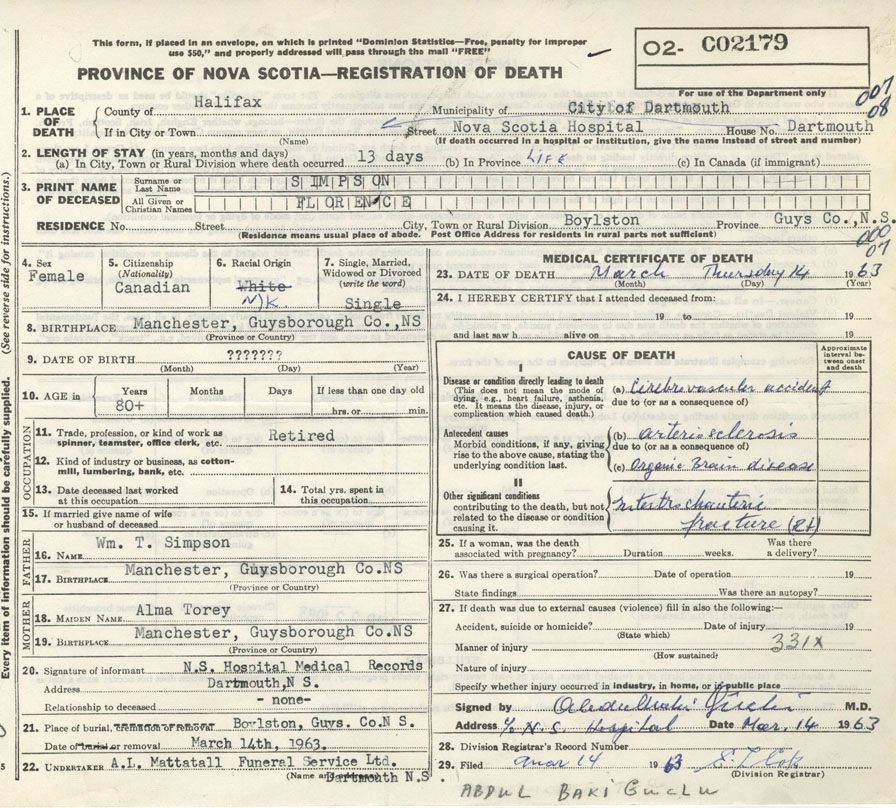 This form, if placed in an envelope, on which is printed "Dominion Statistics—Free, penalty for improper
use $50," and properly addressed will pass through the mail "FREE"
O2- C02179
PROVINCE OF NOVA SCOTIA—REGISTRATION OF DEATH
For use of the Department only
007
08
1. PLACE OF DEATH
County of Halifax Municipality of City of Dartmouth
If in City or Town Street Nova Scotia Hospital House No. Dartmouth
(Name) (If death occurred in a hospital or institution, give the name instead of street and number)
2. LENGTH OF STAY (in years, months and days)
(a) In City, Town or Rural Division where death occurred 13 days (b) In Province LIFE (c) In Canada (if immigrant)
3. PRINT NAME OF DECEASED
Surname or Last Name SIMPSON
All Given or Christian Names FLORENCE
RESIDENCE No. Street City, Town or Rural Division Boylston Province Guys Co.,N.S.
(Residence means usual place of abode. Post Office Address for residents in rural parts not sufficient)
000
07
(See reverse side for instructions.)
Every item of information should be carefully supplied.
4. Sex
Female
5. Citizenship
(Nationality)
Canadian
6. Racial Origin
White
N/K
7. Single, Married,
Widowed or Divorced
(write the word)
Single
8. BIRTHPLACE Manchester, Guysborough Co.,NS
(Province or Country)
9. DATE OF BIRTH ???????
(Month) (Day) (Year)
10. AGE in Years Months Days If less than one day old
80+ hrs. or min.
OCCUPATION
11. Trade, profession, or kind of work as
spinner, teamster, office clerk, etc. Retired
12. Kind of industry or business, as cotton-
mill, lumbering, bank, etc.
13. Date deceased last worked
at this occupation
14. Total yrs. spent in
this occupation
15. If married give name of wife
or husband of deceased
FATHER
16. NAME Wm. T. Simpson
17. BIRTHPLACE Manchester, Guysborough Co.NS
(Province or Country)
MOTHER
18. MAIDEN NAME Alma Torey
19. BIRTHPLACE Manchester, Guysborough Co.NS
(Province or Country)
20. Signature of informant N.S. Hospital Medical Records
Address Dartmouth,N S.
Relationship to deceased - none-
21. Place of burial, cremation or removal Boylston, Guys. Co.N S.
Date of burial or removal March 14th, 1963.
22. UNDERTAKER A.L. Mattatall Funeral Service Ltd.
(Name and address) Dartmouth N.S
MEDICAL CERTIFICATE OF DEATH
23. DATE OF DEATH March Thursday 14 1963
(Month) (Day) (Year)
24. I HEREBY CERTIFY that I attended deceased from:
19 to 19
and last saw h alive on 19
CAUSE OF DEATH
Approximate
interval be-
tween onset
and death
I
Disease or condition directly leading to death
(This does not mean the mode of
dying, e.g., heart failure, asthenia,
etc. It means the disease, injury, or
complication which caused death.)
(a) Cerebrovascular accident
due to (or as a consequence of)
Antecedent causes
Morbid conditions, if any, giving
rise to the above cause, stating the
underlying condition last.
(b) arteriosclerosis
due to (or as a consequence of)
(c) Organic Brain disease
II
Other significant conditions
contributing to the death, but not
related to the disease or condition
causing it.
fracture (Rt)
25. If a woman, was the death
associated with pregnancy? Duration weeks. Was there
a delivery?
26. Was there a surgical operation? Date of operation 19
State findings Was there an autopsy?
27. If death was due to external causes (violence) fill in also the following:—
Accident, suicide or homicide? Date of injury 19
(State which)
Manner of injury 331X
(How sustained)
Nature of injury
Specify whether injury occurred in industry, in home, or in public place
Signed by M.D.
Address c/o N.S. Hospital Date Mar. 14 1963
28. Division Registrar's Record Number
29. Filed Mar 14 1963
(Division Registrar)
ABDUL BAKI GUCLU